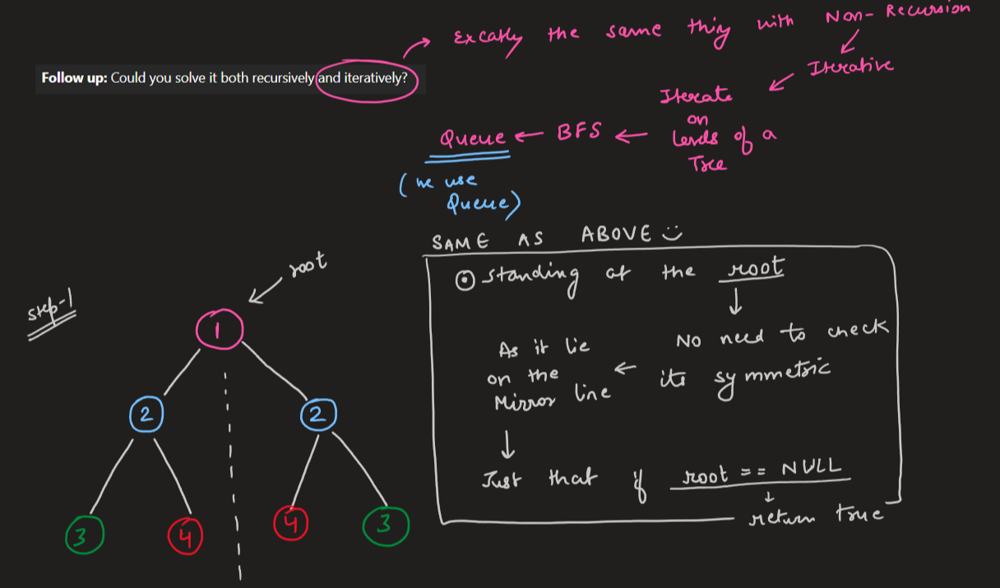 Excatly the same thing with Non-Recursion
Follow up: Could you solve it both recursively and iteratively?
Iterative
Iterate
on
Levels of a
Tree
BFS
Queue
(we use
Queue)
SAME AS ABOVE
Step-1
root
Standing at the root
No need to check
its symmetric
As it lie
on the
Mirror line
Just that if root == NULL
return true
1
2 2
3 4 4 3